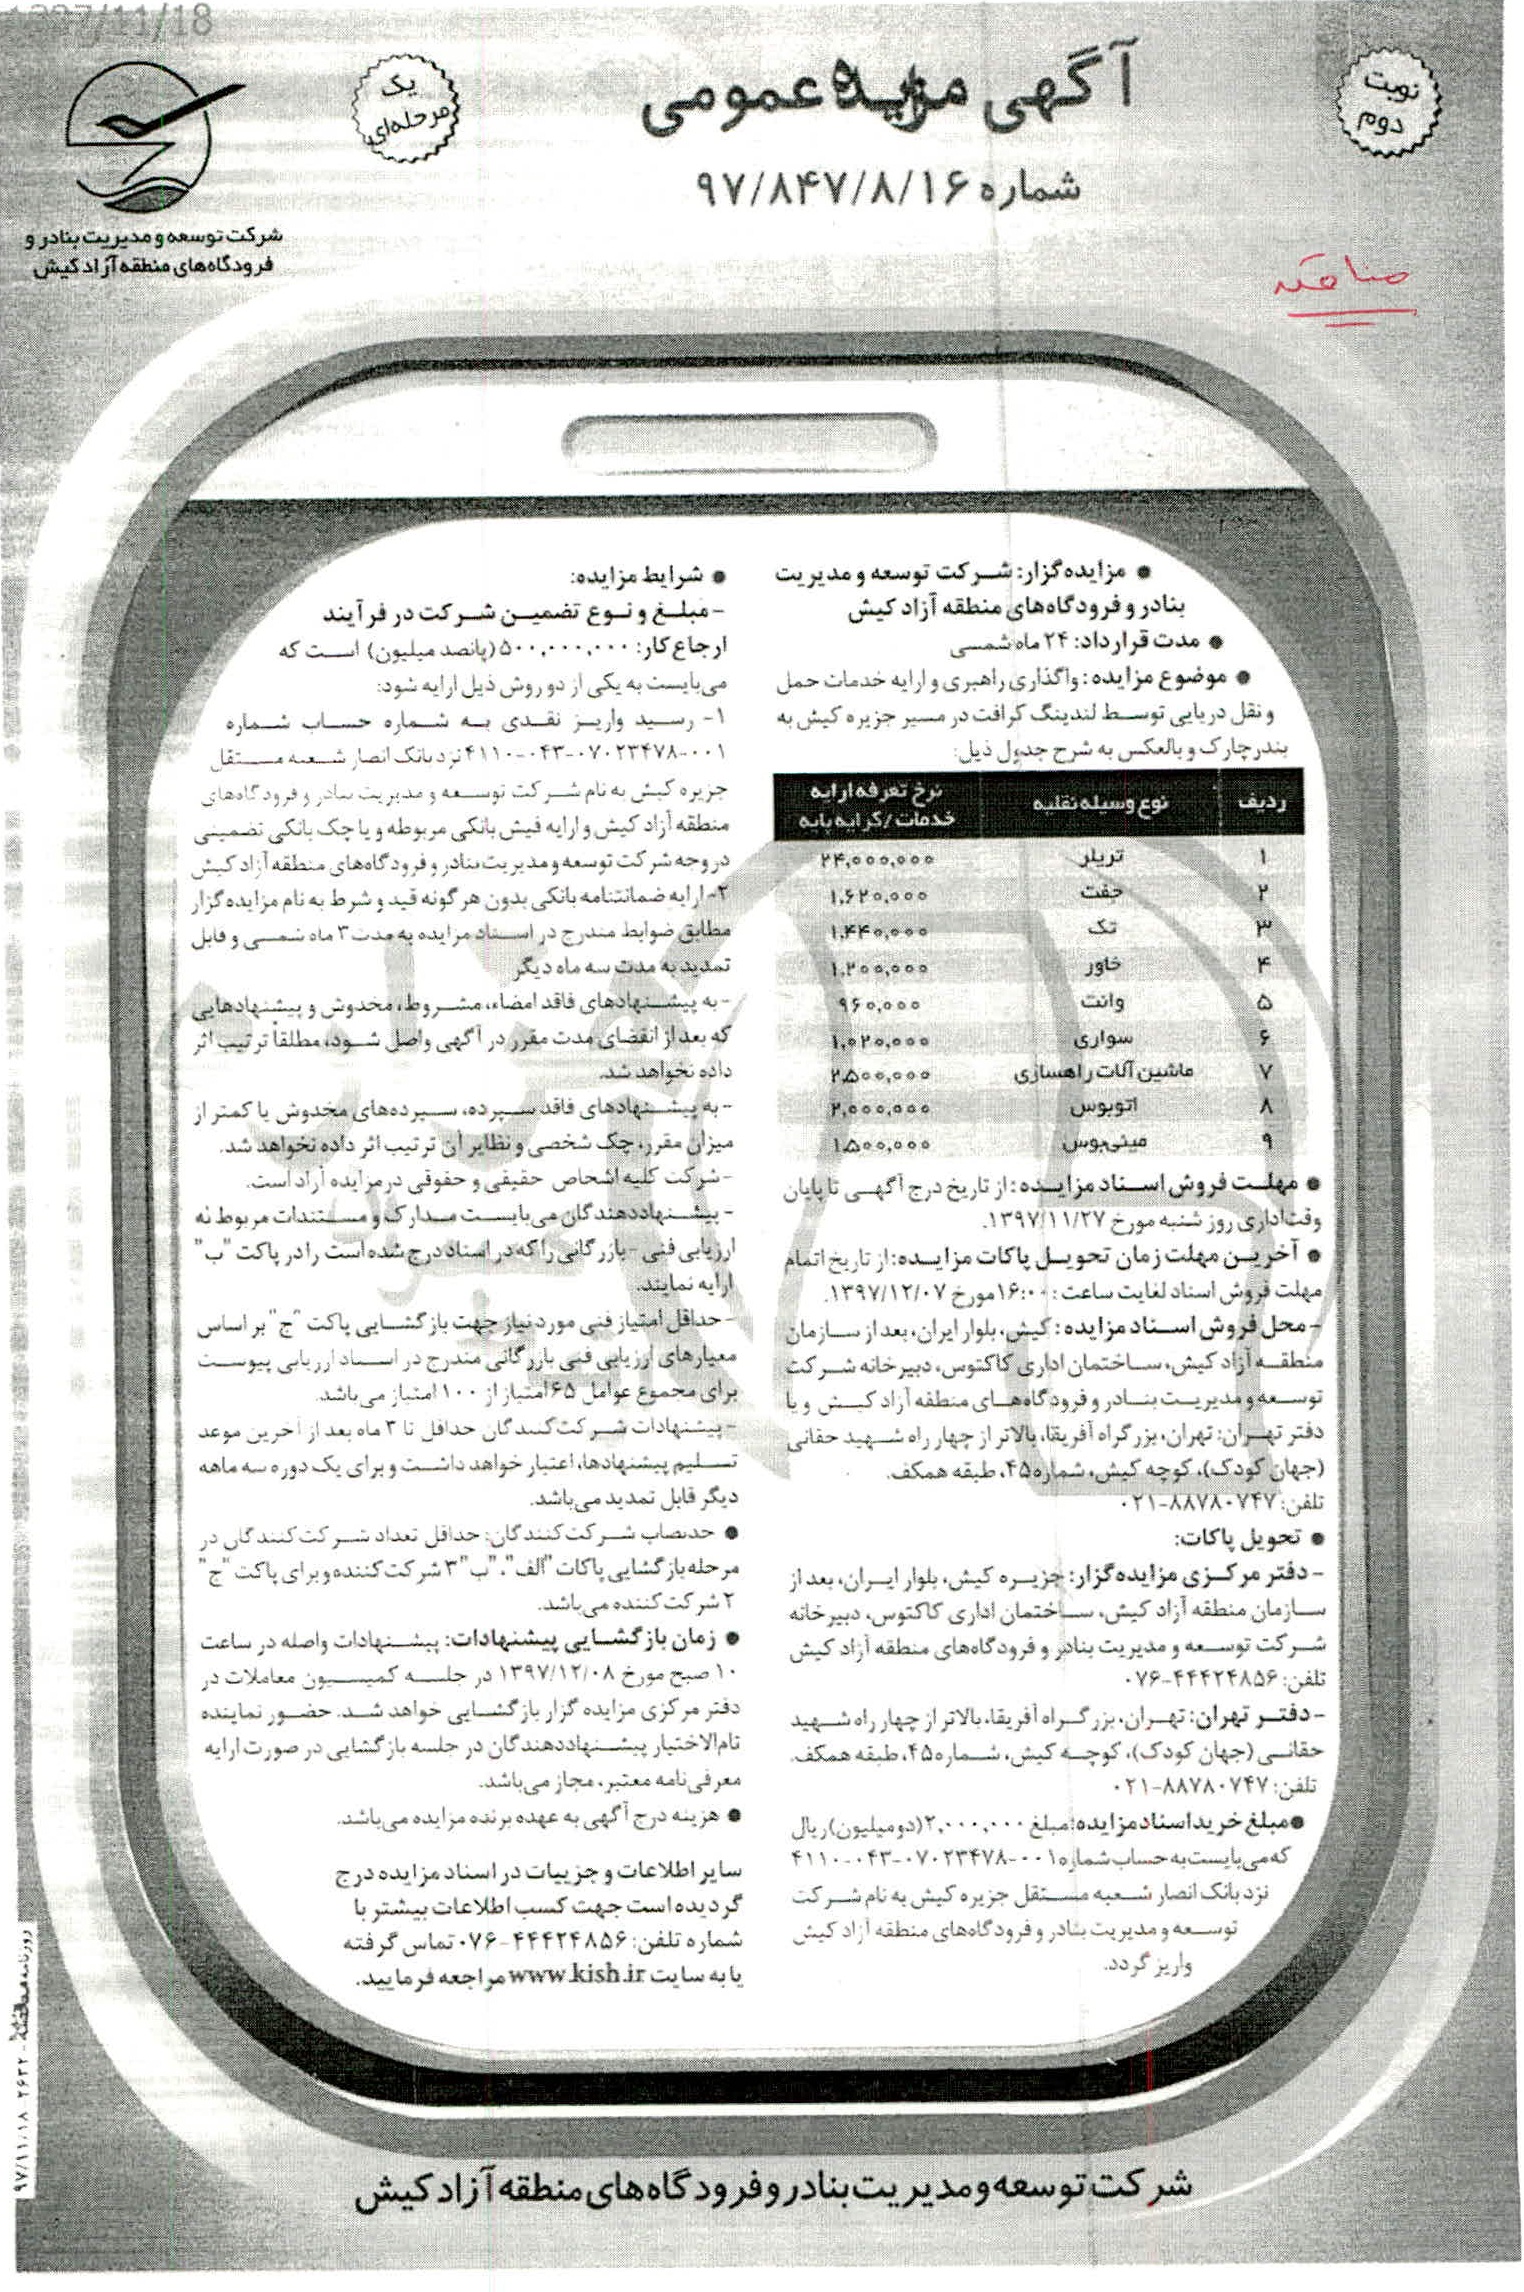 1397/11/18
نوبت
دوم
آگهی مزایده عمومی
شماره ۹۷/۸۴۷/۸/۱۶
یک
مرحله‌ای
شرکت توسعه و مدیریت بنادر و
فرودگاه‌های منطقه آزاد کیش
مناقصه
● مزایده‌گزار: شرکت توسعه و مدیریت
بنادر و فرودگاه‌های منطقه آزاد کیش
● مدت قرارداد: ۲۴ ماه شمسی
● موضوع مزایده: واگذاری راهبری و ارایه خدمات حمل
و نقل دریایی توسط لندینگ کرافت در مسیر جزیره کیش به
بندر چارک و بالعکس به شرح جدول ذیل:
ردیف نوع وسیله نقلیه نرخ تعرفه ارایه خدمات/کرایه پایه
۱ تریلر ۲۴,۰۰۰,۰۰۰
۲ جفت ۱,۶۲۰,۰۰۰
۳ تک ۱,۴۴۰,۰۰۰
۴ خاور ۱,۲۰۰,۰۰۰
۵ وانت ۹۶۰,۰۰۰
۶ سواری ۱,۰۲۰,۰۰۰
۷ ماشین آلات راهسازی ۲,۵۰۰,۰۰۰
۸ اتوبوس ۲,۰۰۰,۰۰۰
۹ مینی‌بوس ۱,۵۰۰,۰۰۰
● مهلت فروش اسناد مزایده: از تاریخ درج آگهی تا پایان
وقت اداری روز شنبه مورخ ۱۳۹۷/۱۱/۲۷.
● آخرین مهلت زمان تحویل پاکات مزایده: از تاریخ اتمام
مهلت فروش اسناد لغایت ساعت ۱۶:۰۰ مورخ ۱۳۹۷/۱۲/۰۷.
- محل فروش اسناد مزایده: کیش، بلوار ایران، بعد از سازمان
منطقه آزاد کیش، ساختمان اداری کاکتوس، دبیرخانه شرکت
توسعه و مدیریت بنادر و فرودگاه‌های منطقه آزاد کیش و یا
دفتر تهران: تهران، بزرگراه آفریقا، بالاتر از چهار راه شهید حقانی
(جهان کودک)، کوچه کیش، شماره ۴۵، طبقه همکف.
تلفن: ۸۸۷۸۰۷۴۷-۰۲۱
● تحویل پاکات:
- دفتر مرکزی مزایده‌گزار: جزیره کیش، بلوار ایران، بعد از
سازمان منطقه آزاد کیش، ساختمان اداری کاکتوس، دبیرخانه
شرکت توسعه و مدیریت بنادر و فرودگاه‌های منطقه آزاد کیش
تلفن: ۴۴۴۲۴۸۵۶-۰۷۶
- دفتر تهران: تهران، بزرگراه آفریقا، بالاتر از چهار راه شهید
حقانی (جهان کودک)، کوچه کیش، شماره ۴۵، طبقه همکف.
تلفن: ۸۸۷۸۰۷۴۷-۰۲۱
● مبلغ خرید اسناد مزایده: مبلغ ۲,۰۰۰,۰۰۰ (دو میلیون) ریال
که می‌بایست به حساب شماره ۰۰۱-۰۷۰۲۳۴۷۸-۰۴۳-۴۱۱۰
نزد بانک انصار شعبه مستقل جزیره کیش به نام شرکت
توسعه و مدیریت بنادر و فرودگاه‌های منطقه آزاد کیش
واریز گردد.
● شرایط مزایده:
- مبلغ و نوع تضمین شرکت در فرآیند
ارجاع کار: ۵۰۰,۰۰۰,۰۰۰ (پانصد میلیون) است که
می‌بایست به یکی از دو روش ذیل ارایه شود:
۱- رسید واریز نقدی به شماره حساب شماره
۰۰۱-۰۷۰۲۳۴۷۸-۰۴۳-۴۱۱۰ نزد بانک انصار شعبه مستقل
جزیره کیش به نام شرکت توسعه و مدیریت بنادر و فرودگاه‌های
منطقه آزاد کیش و ارایه فیش بانکی مربوطه و یا چک بانکی تضمینی
در وجه شرکت توسعه و مدیریت بنادر و فرودگاه‌های منطقه آزاد کیش
۲- ارایه ضمانتنامه بانکی بدون هر گونه قید و شرط به نام مزایده گزار
مطابق ضوابط مندرج در اسناد مزایده به مدت ۳ ماه شمسی و قابل
تمدید به مدت سه ماه دیگر
- به پیشنهادهای فاقد امضاء، مشروط، مخدوش و پیشنهادهایی
که بعد از انقضای مدت مقرر در آگهی واصل شود، مطلقاً ترتیب اثر
داده نخواهد شد.
- به پیشنهادهای فاقد سپرده، سپرده‌های مخدوش یا کمتر از
میزان مقرر، چک شخصی و نظایر آن ترتیب اثر داده نخواهد شد.
- شرکت کلیه اشخاص حقیقی و حقوقی در مزایده آزاد است.
- پیشنهاددهندگان می‌بایست مدارک و مستندات مربوط به
ارزیابی فنی - بازرگانی را که در اسناد درج شده است را در پاکت "ب"
ارایه نمایند.
- حداقل امتیاز فنی مورد نیاز جهت بازگشایی پاکت "ج" بر اساس
معیارهای ارزیابی فنی بازرگانی مندرج در اسناد ارزیابی پیوست
برای مجموع عوامل ۶۵ امتیاز از ۱۰۰ امتیاز می‌باشد.
- پیشنهادات شرکت‌کنندگان حداقل تا ۳ ماه بعد از آخرین موعد
تسلیم پیشنهادها، اعتبار خواهد داشت و برای یک دوره سه ماهه
دیگر قابل تمدید می‌باشد.
● حدنصاب شرکت‌کنندگان: حداقل تعداد شرکت‌کنندگان در
مرحله بازگشایی پاکات "الف"، "ب" ۳ شرکت‌کننده و برای پاکت "ج"
۲ شرکت‌کننده می‌باشد.
● زمان بازگشایی پیشنهادات: پیشنهادات واصله در ساعت
۱۰ صبح مورخ ۱۳۹۷/۱۲/۰۸ در جلسه کمیسیون معاملات در
دفتر مرکزی مزایده گزار بازگشایی خواهد شد. حضور نماینده
تام‌الاختیار پیشنهاددهندگان در جلسه بازگشایی در صورت ارایه
معرفی‌نامه معتبر، مجاز می‌باشد.
● هزینه درج آگهی به عهده برنده مزایده می‌باشد.
سایر اطلاعات و جزییات در اسناد مزایده درج
گردیده است جهت کسب اطلاعات بیشتر با
شماره تلفن: ۴۴۴۲۴۸۵۶-۰۷۶ تماس گرفته
یا به سایت www.kish.ir مراجعه فرمایید.
شرکت توسعه و مدیریت بنادر و فرودگاه‌های منطقه آزاد کیش
روزنامه مناقصه - ۲۶۳۲ ۹۷/۱۱/۱۸